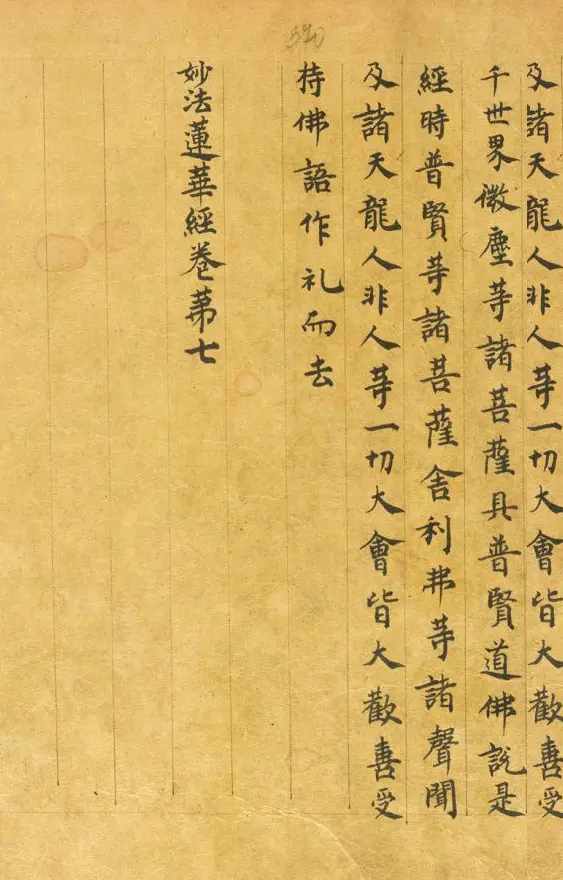 370
及諸天龍人非人䓁一切大會皆大歡喜受
千世界微塵䓁諸菩薩具普賢道佛說是
經時普賢䓁諸菩薩舍利弗䓁諸聲聞
及諸天龍人非人䓁一切大會皆大歡喜受
持佛語作礼而去
妙法蓮華經卷苐七